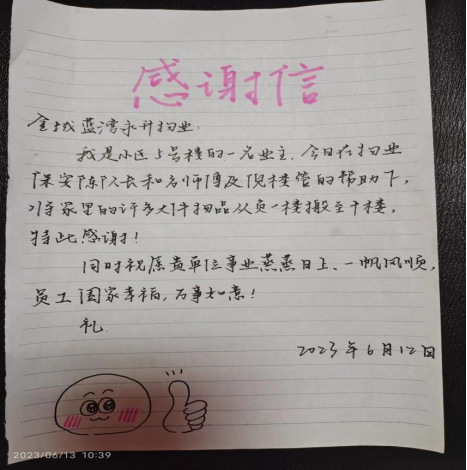 感谢信
金域蓝湾永升物业:
我是小区5号楼的一名业主,今日在物业
保安陈队长和名师傅及倪楼管的帮助下,
将家里的许多大件物品从负一楼搬至十楼,
特此感谢!
同时祝愿贵单位事业蒸蒸日上、一帆风顺,
员工阖家幸福,万事如意!
礼
2023年6月12日
2023/06/13 10:39